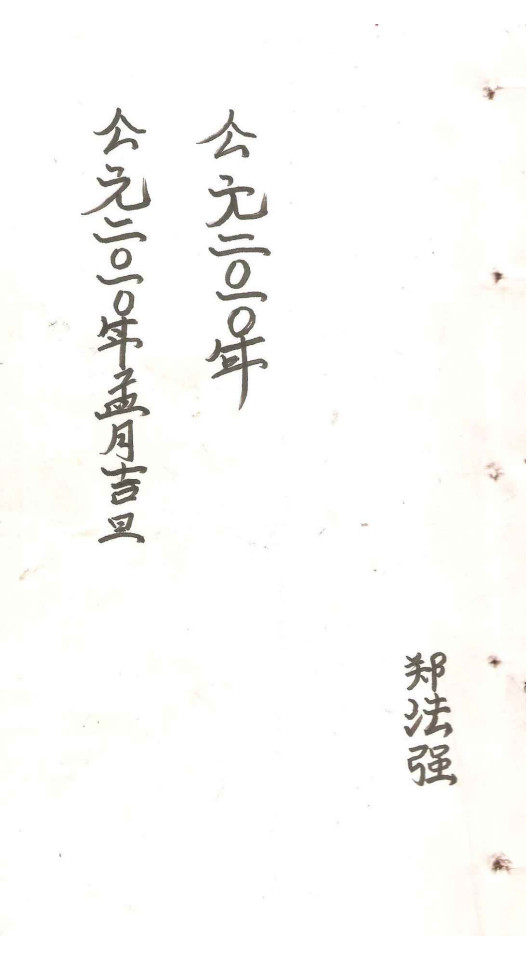 郑法强
公元二〇一〇年
公元二〇一〇年孟月吉旦